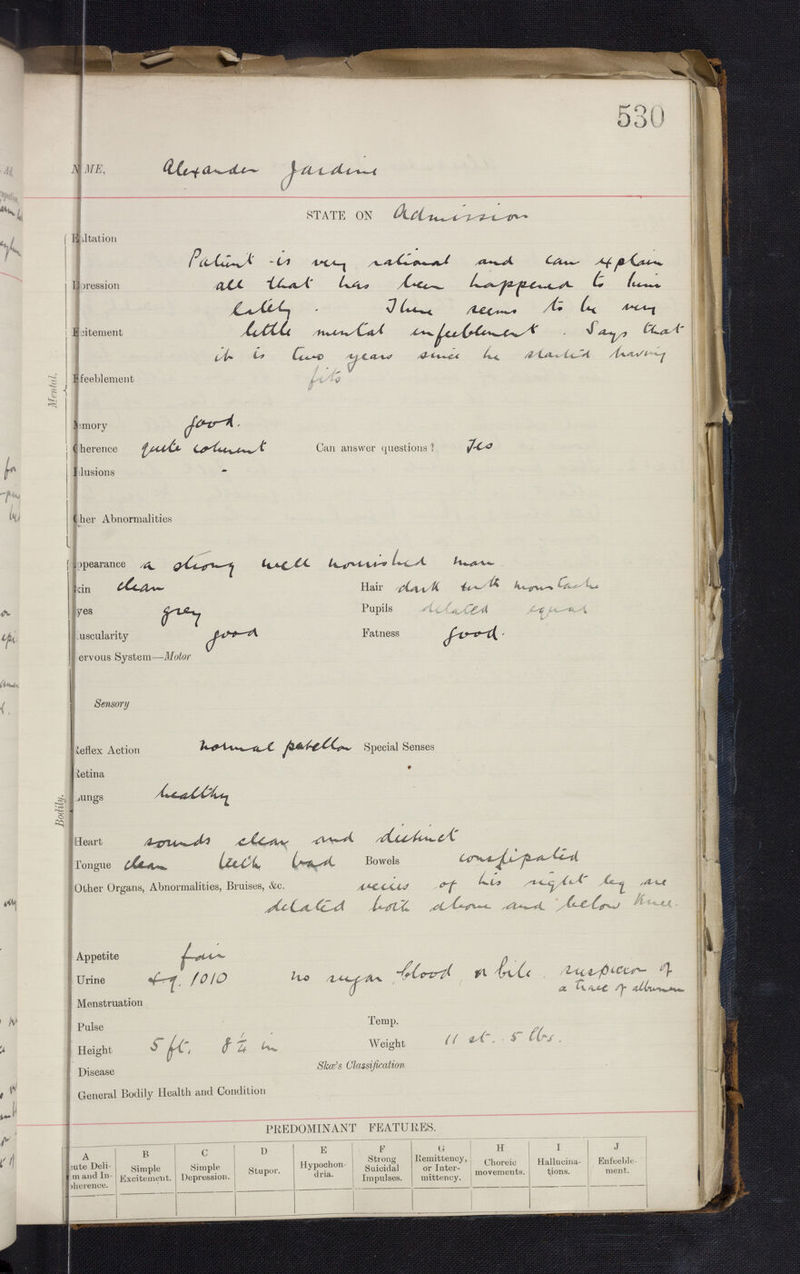 530
ME, Alexander Jardine
STATE ON Admission
ltation
Patient is very rational and can explain
pression all that has been happened to him
lately. There seems to be very
citement little mental enfeeblement. Says that
it is two years since he started having
feeblement fits
Mental.
mory good.
herence quite coherent Can answer questions? Yes
lusions -
her Abnormalities
ppearance a strong well nourished man
kin clear Hair dark with moustache
yes grey Pupils dilated equal
uscularity good Fatness good.
ervous System—Motor
Sensory
Reflex Action normal patellar Special Senses
Retina
Lungs healthy
Bodily.
Heart sounds clear and distinct
Tongue clean teeth bad Bowels constipated
Other Organs, Abnormalities, Bruises, &c. veins of his right leg are
dilated both above and below knee.
Appetite fair
Urine 1010 no sugar blood or bile suspicion of
a trace of albumen
Menstruation
Pulse Temp.
Height 5 ft. 8 in Weight 11 st. 5 lbs.
Disease Skae's Classification
General Bodily Health and Condition
PREDOMINANT FEATURES.
A B C D E F G H I J
cute Deli- m and In- oherence. Simple Excitement. Simple Depression. Stupor. Hypochon- dria. Strong Suicidal Impulses. Remittency, or Inter- mittency. Choreic movements. Hallucina- tions. Enfeeble- ment.